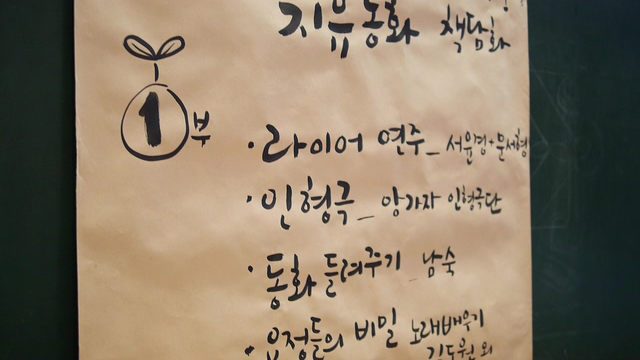 치유동화 책담화
1부
· 라이어 연주_ 서윤경+문서형
· 인형극_ 앙가자 인형극단
· 동화 들려주기_남숙
· 요정들의 비밀 노래배우기
김도원 외